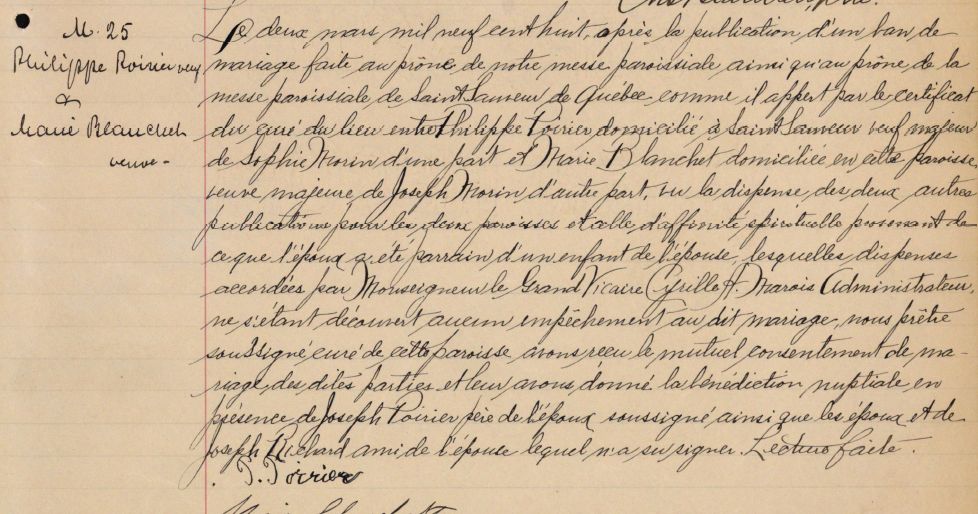 M. 25
Philippe Poirier veuf
&
Marie Blanchet
veuve -
Le deux mars mil neuf cent huit, après la publication d'un ban de
mariage faite au prône de notre messe paroissiale ainsi qu'au prône de la
messe paroissiale de Saint Sauveur de Québec comme il appert par le certificat
du curé du lieu entre Philippe Poirier domicilié à Saint Sauveur veuf majeur
de Sophie Morin d'une part et Marie Blanchet domiciliée en cette paroisse
veuve majeure de Joseph Morin d'autre part, vu la dispense des deux autres
publications pour les deux paroisses et celle d'affinité spirituelle provenant de
ce que l'époux a été parrain d'un enfant de l'épouse, lesquelles dispenses
accordées par Monseigneur le Grand Vicaire Cyrille A. Marois Administrateur,
ne s'étant découvert aucun empêchement au dit mariage, nous prêtre
soussigné curé de cette paroisse avons reçu le mutuel consentement de ma-
riage des dites parties et leur avons donné la bénédiction nuptiale en
présence de Joseph Poirier père de l'époux soussigné ainsi que les époux et de
Joseph Richard ami de l'épouse lequel n'a su signer. Lecture faite.
P. Poirier